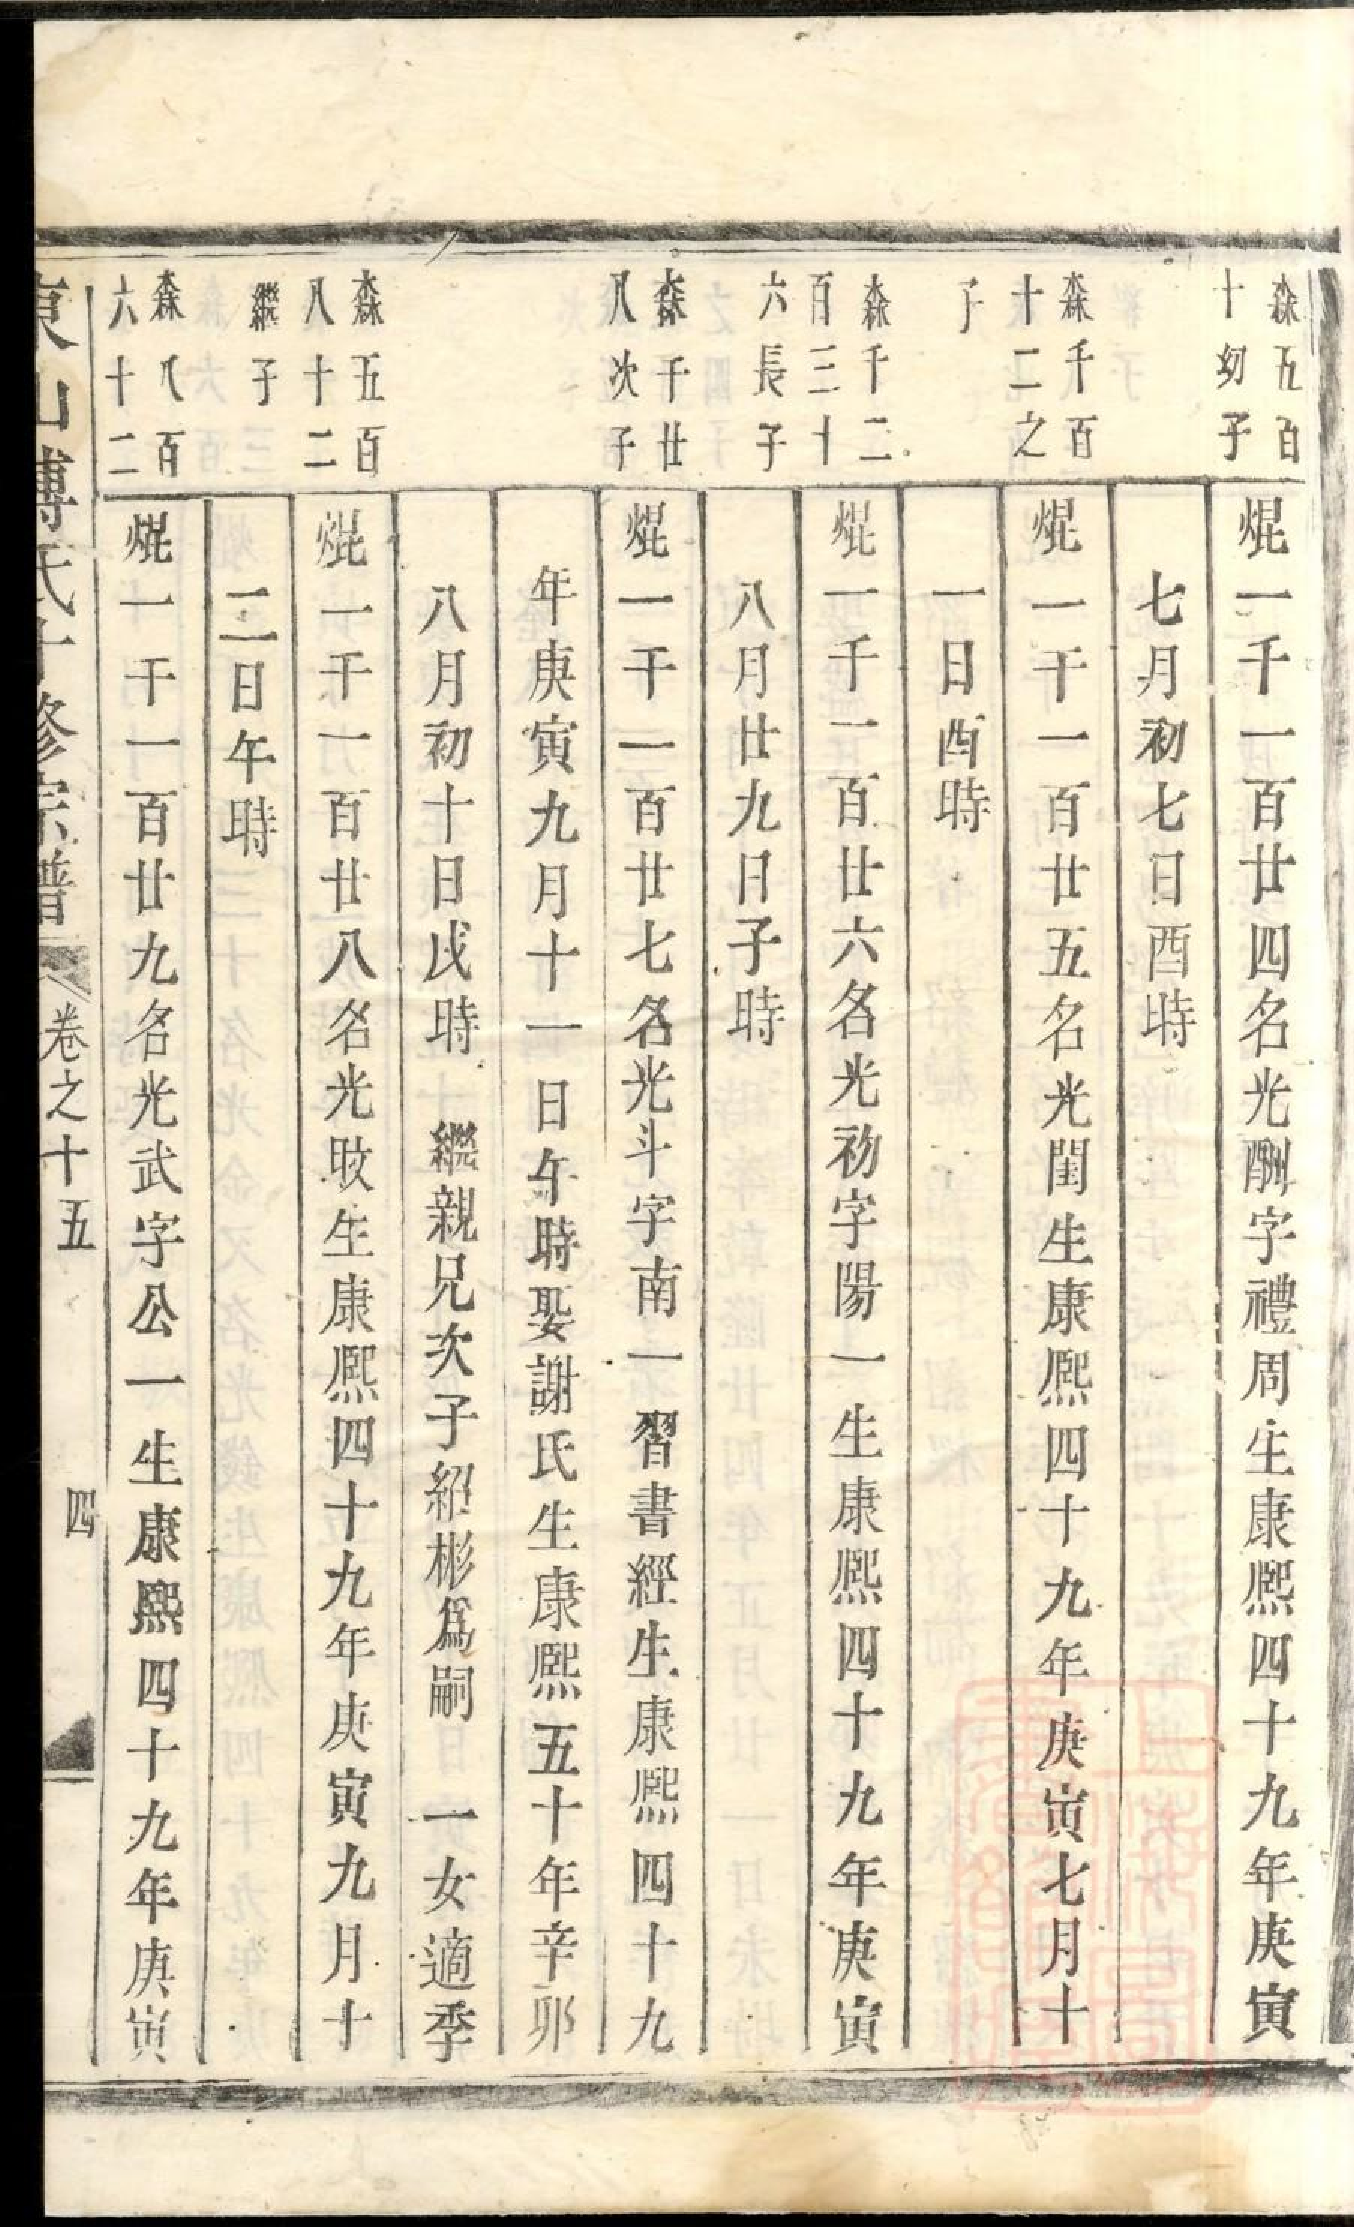 森五百
十幼子
焜一千一百廿四名光酬字禮周生康熙四十九年庚寅
七月初七日酉時
森千百
十二之
子
焜一千一百廿五名光閏生康熙四十九年庚寅七月十
一日酉時
森千二
百三十
六長子
焜一千一百廿六名光初字陽一生康熙四十九年庚寅
八月廿九日子時
森千廿
八次子
焜一千一百廿七名光斗字南一習書經生康熙四十九
年庚寅九月十一日午時娶謝氏生康熙五十年辛卯
八月初十日戌時 繼親兄次子紹彬爲嗣 一女適季
森五百
八十二
繼子
焜一千一百廿八名光旼生康熙四十九年庚寅九月十
二日午時
森八百
六十二
焜一千一百廿九名光武字公一生康熙四十九年庚寅
東山傅氏十修宗譜 卷之十五 四